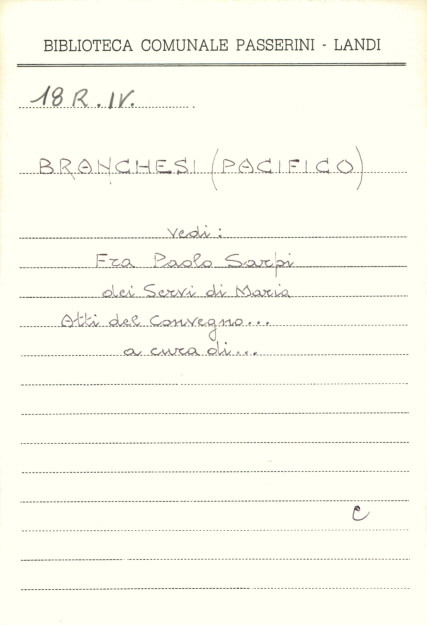 BIBLIOTECA COMUNALE PASSERINI - LANDI
18 R. IV.
BRANCHESI (PACIFICO)
vedi:
Fra Paolo Sarpi
dei Servi di Maria
Atti del Convegno...
a cura di...
C